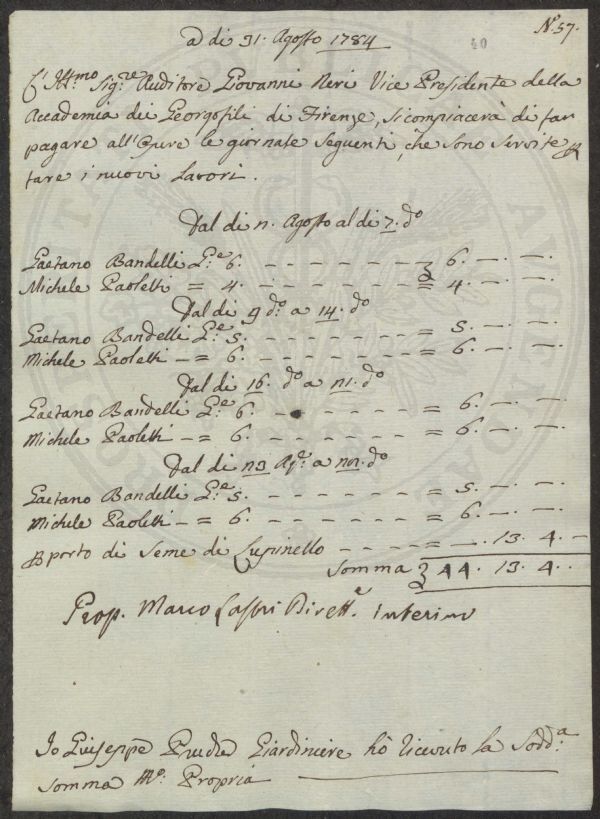 N.° 57.
40
A dì 31. Agosto 1784
L'Ill.mo Sig.re Auditore Giovanni Neri Vice Presidente della
Accademia dei Georgofili di Firenze, si compiacerà di far
pagare all'Opere le giornate seguenti, che sono servite p
fare i nuovi Lavori.
Dal di 2. Agosto al di 7. d.°
Gaetano Bandelli G.e 6. - - - - - - - 6. — . — .
Michele Paoletti = 4. - - - - - - = 4. — . — .
Dal di 9 d.° a 14. d.°
Gaetano Bandelli G.e 5. - - - - - - = 5. — . — .
Michele Paoletti — = 6. - - - - - - = 6. — . — .
Dal di 16. d.° a 21. d.°
Gaetano Bandelli G.e 6. - - - - - - = 6. — . — .
Michele Paoletti — = 6. - - - - - - = 6. — . — .
Dal di 23 Ag.° a 28. d.°
Gaetano Bandelli G.e 5. - - - - - - = 5. — . — .
Michele Paoletti — = 6. - - - - - - = 6. — . — .
p porto di Seme di Lupinello - - - - = — . 13. 4. —
Somma 44. 13. 4. .
Prop. Marco Lastri Dirett.e Interino
Io Giuseppe Giardiniere hò ricevuto la Sodd.a
Somma M.° Propria